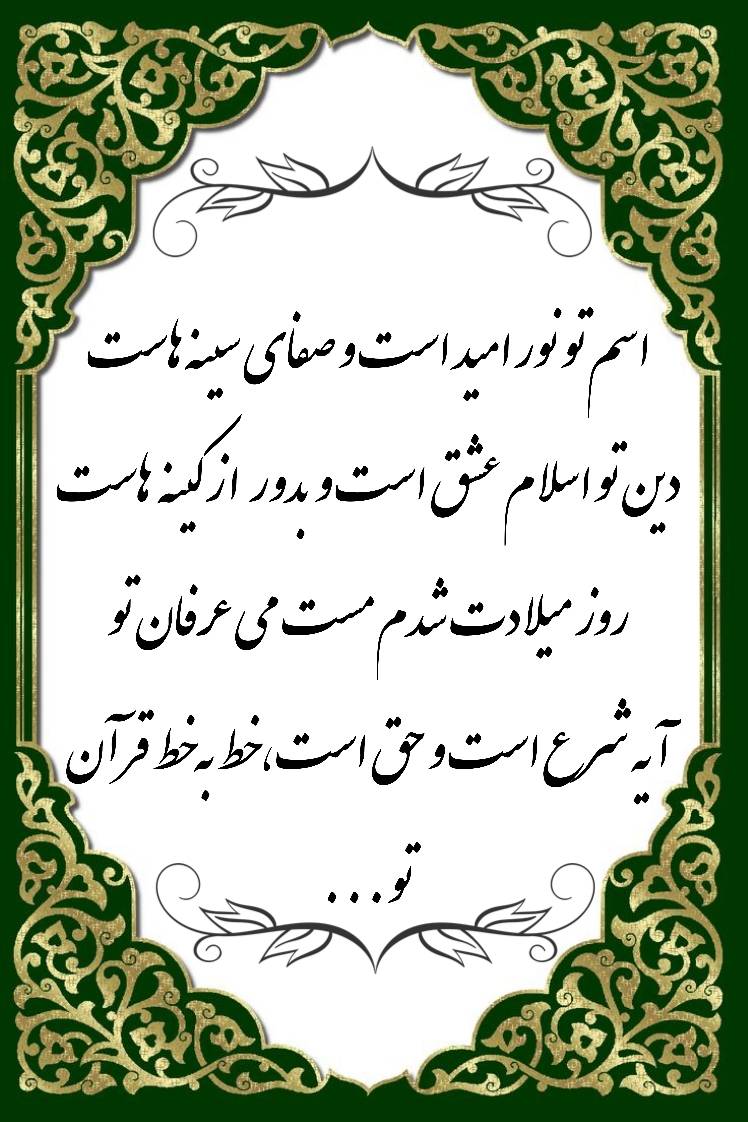 اسم تو نور امید است و صفای سینه هاست
دین تو اسلام عشق است و بدور از کینه هاست
روز میلادت شدم مست می عرفان تو
آیه شرع است و حق است، خط به خط قرآن
تو...